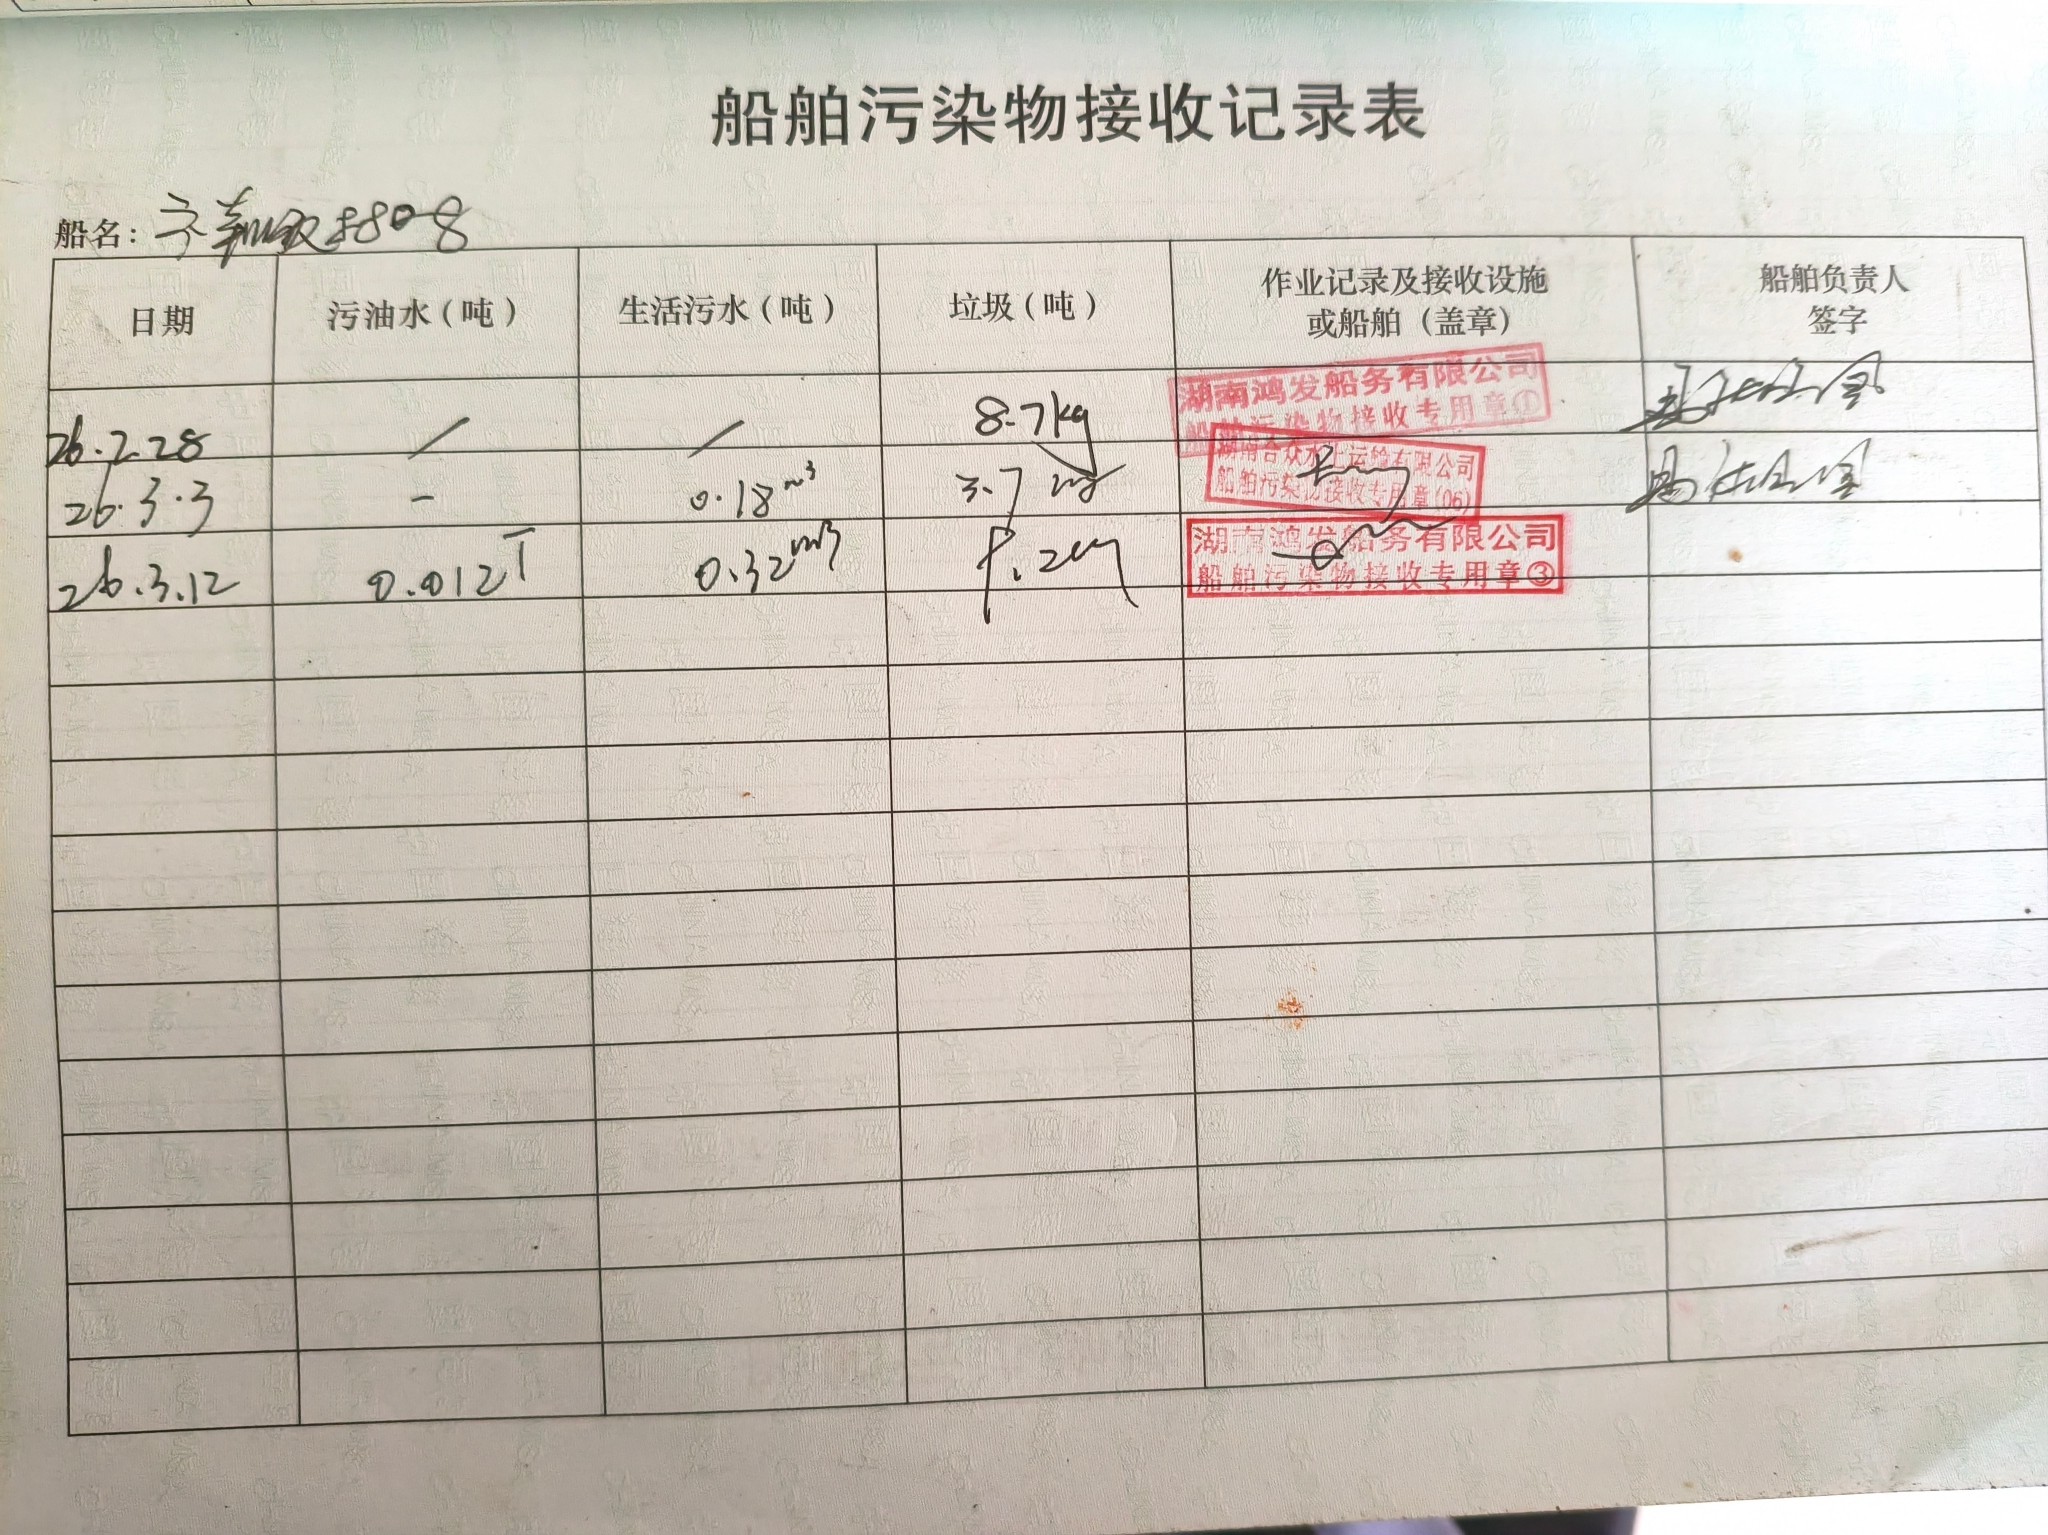 船舶污染物接收记录表
船名：
日期 污油水（吨） 生活污水（吨） 垃圾（吨） 作业记录及接收设施或船舶（盖章） 船舶负责人签字
26.2.28 / / 8.7kg 湖南鸿发船务有限公司
船舶污染物接收专用章①
26.3.3 - 0.18m³ 3.7kg 湖南合众水上运输有限公司
船舶污染物接收专用章(06)
26.3.12 0.012T 0.32m³ 8.2kg 湖南鸿发船务有限公司
船舶污染物接收专用章③